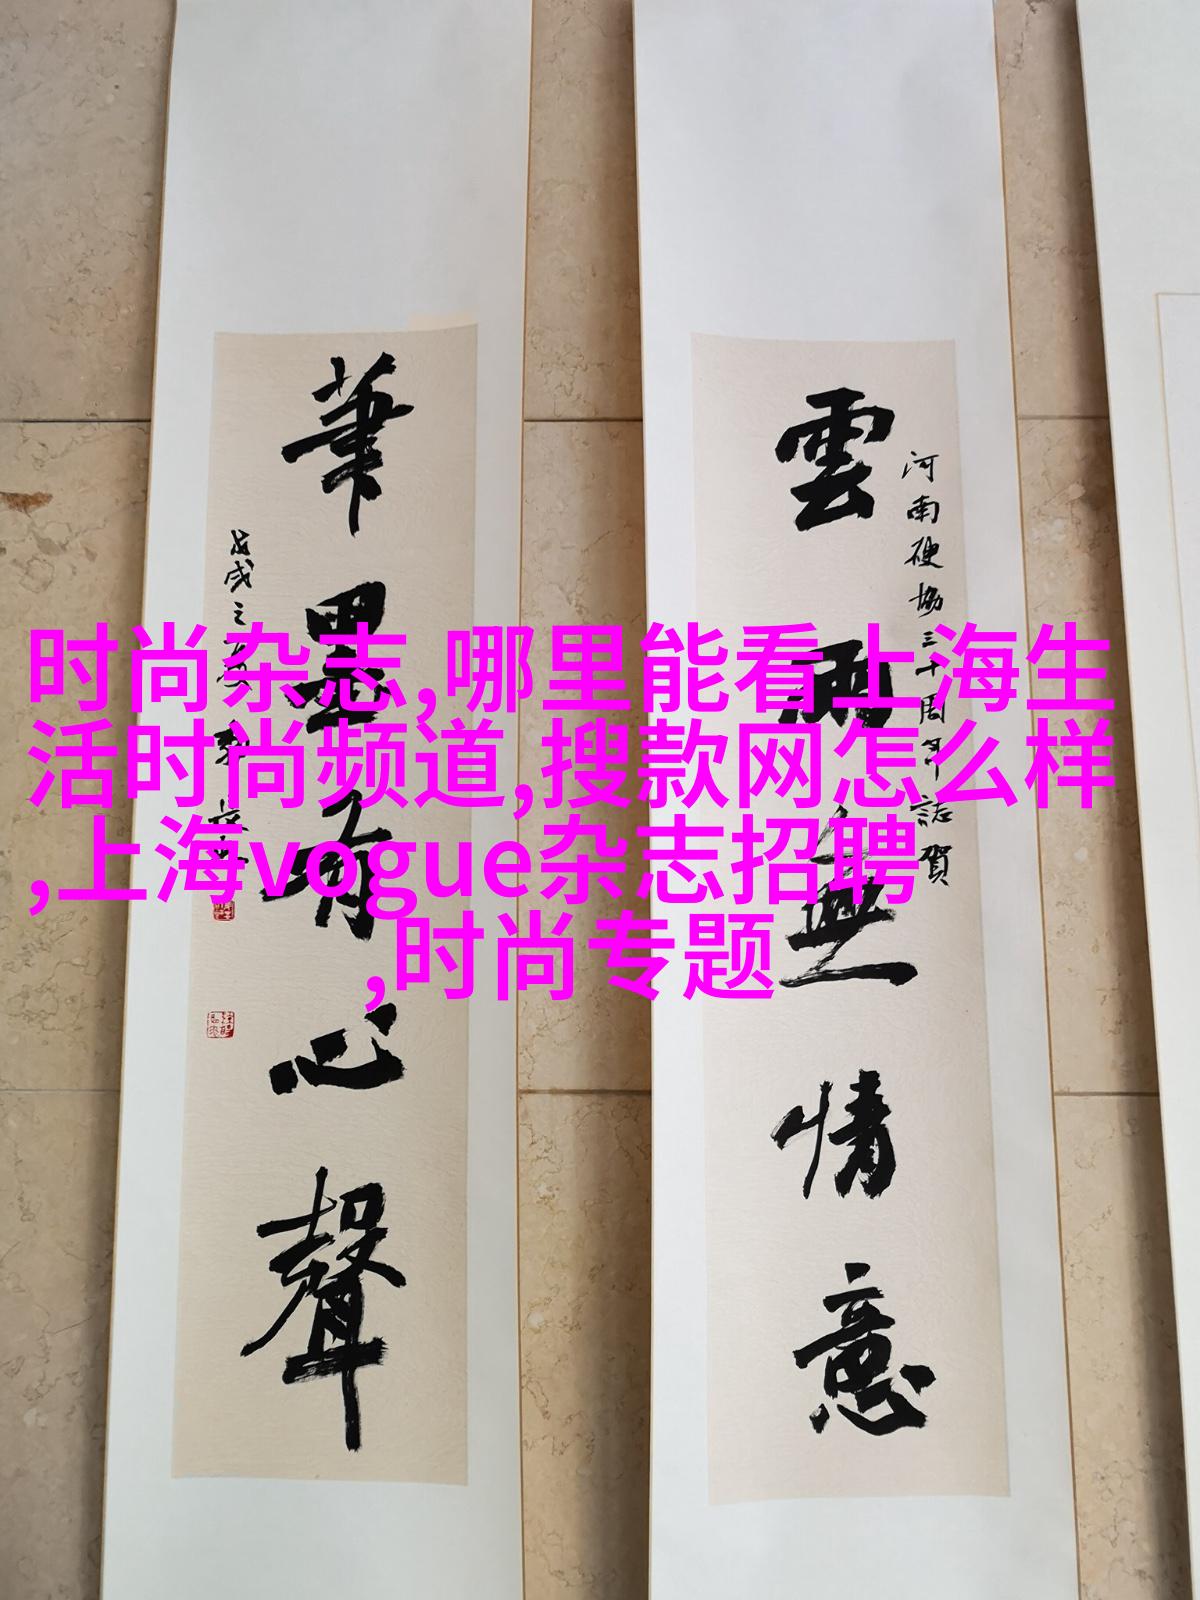 时尚杂志,哪里能看上海生
活时尚频道,搜款网怎么样
,上海vogue杂志招聘
,时尚专题
雲雨無情意
河南硬協三十周年誌賀
筆墨有心聲
戊戌之